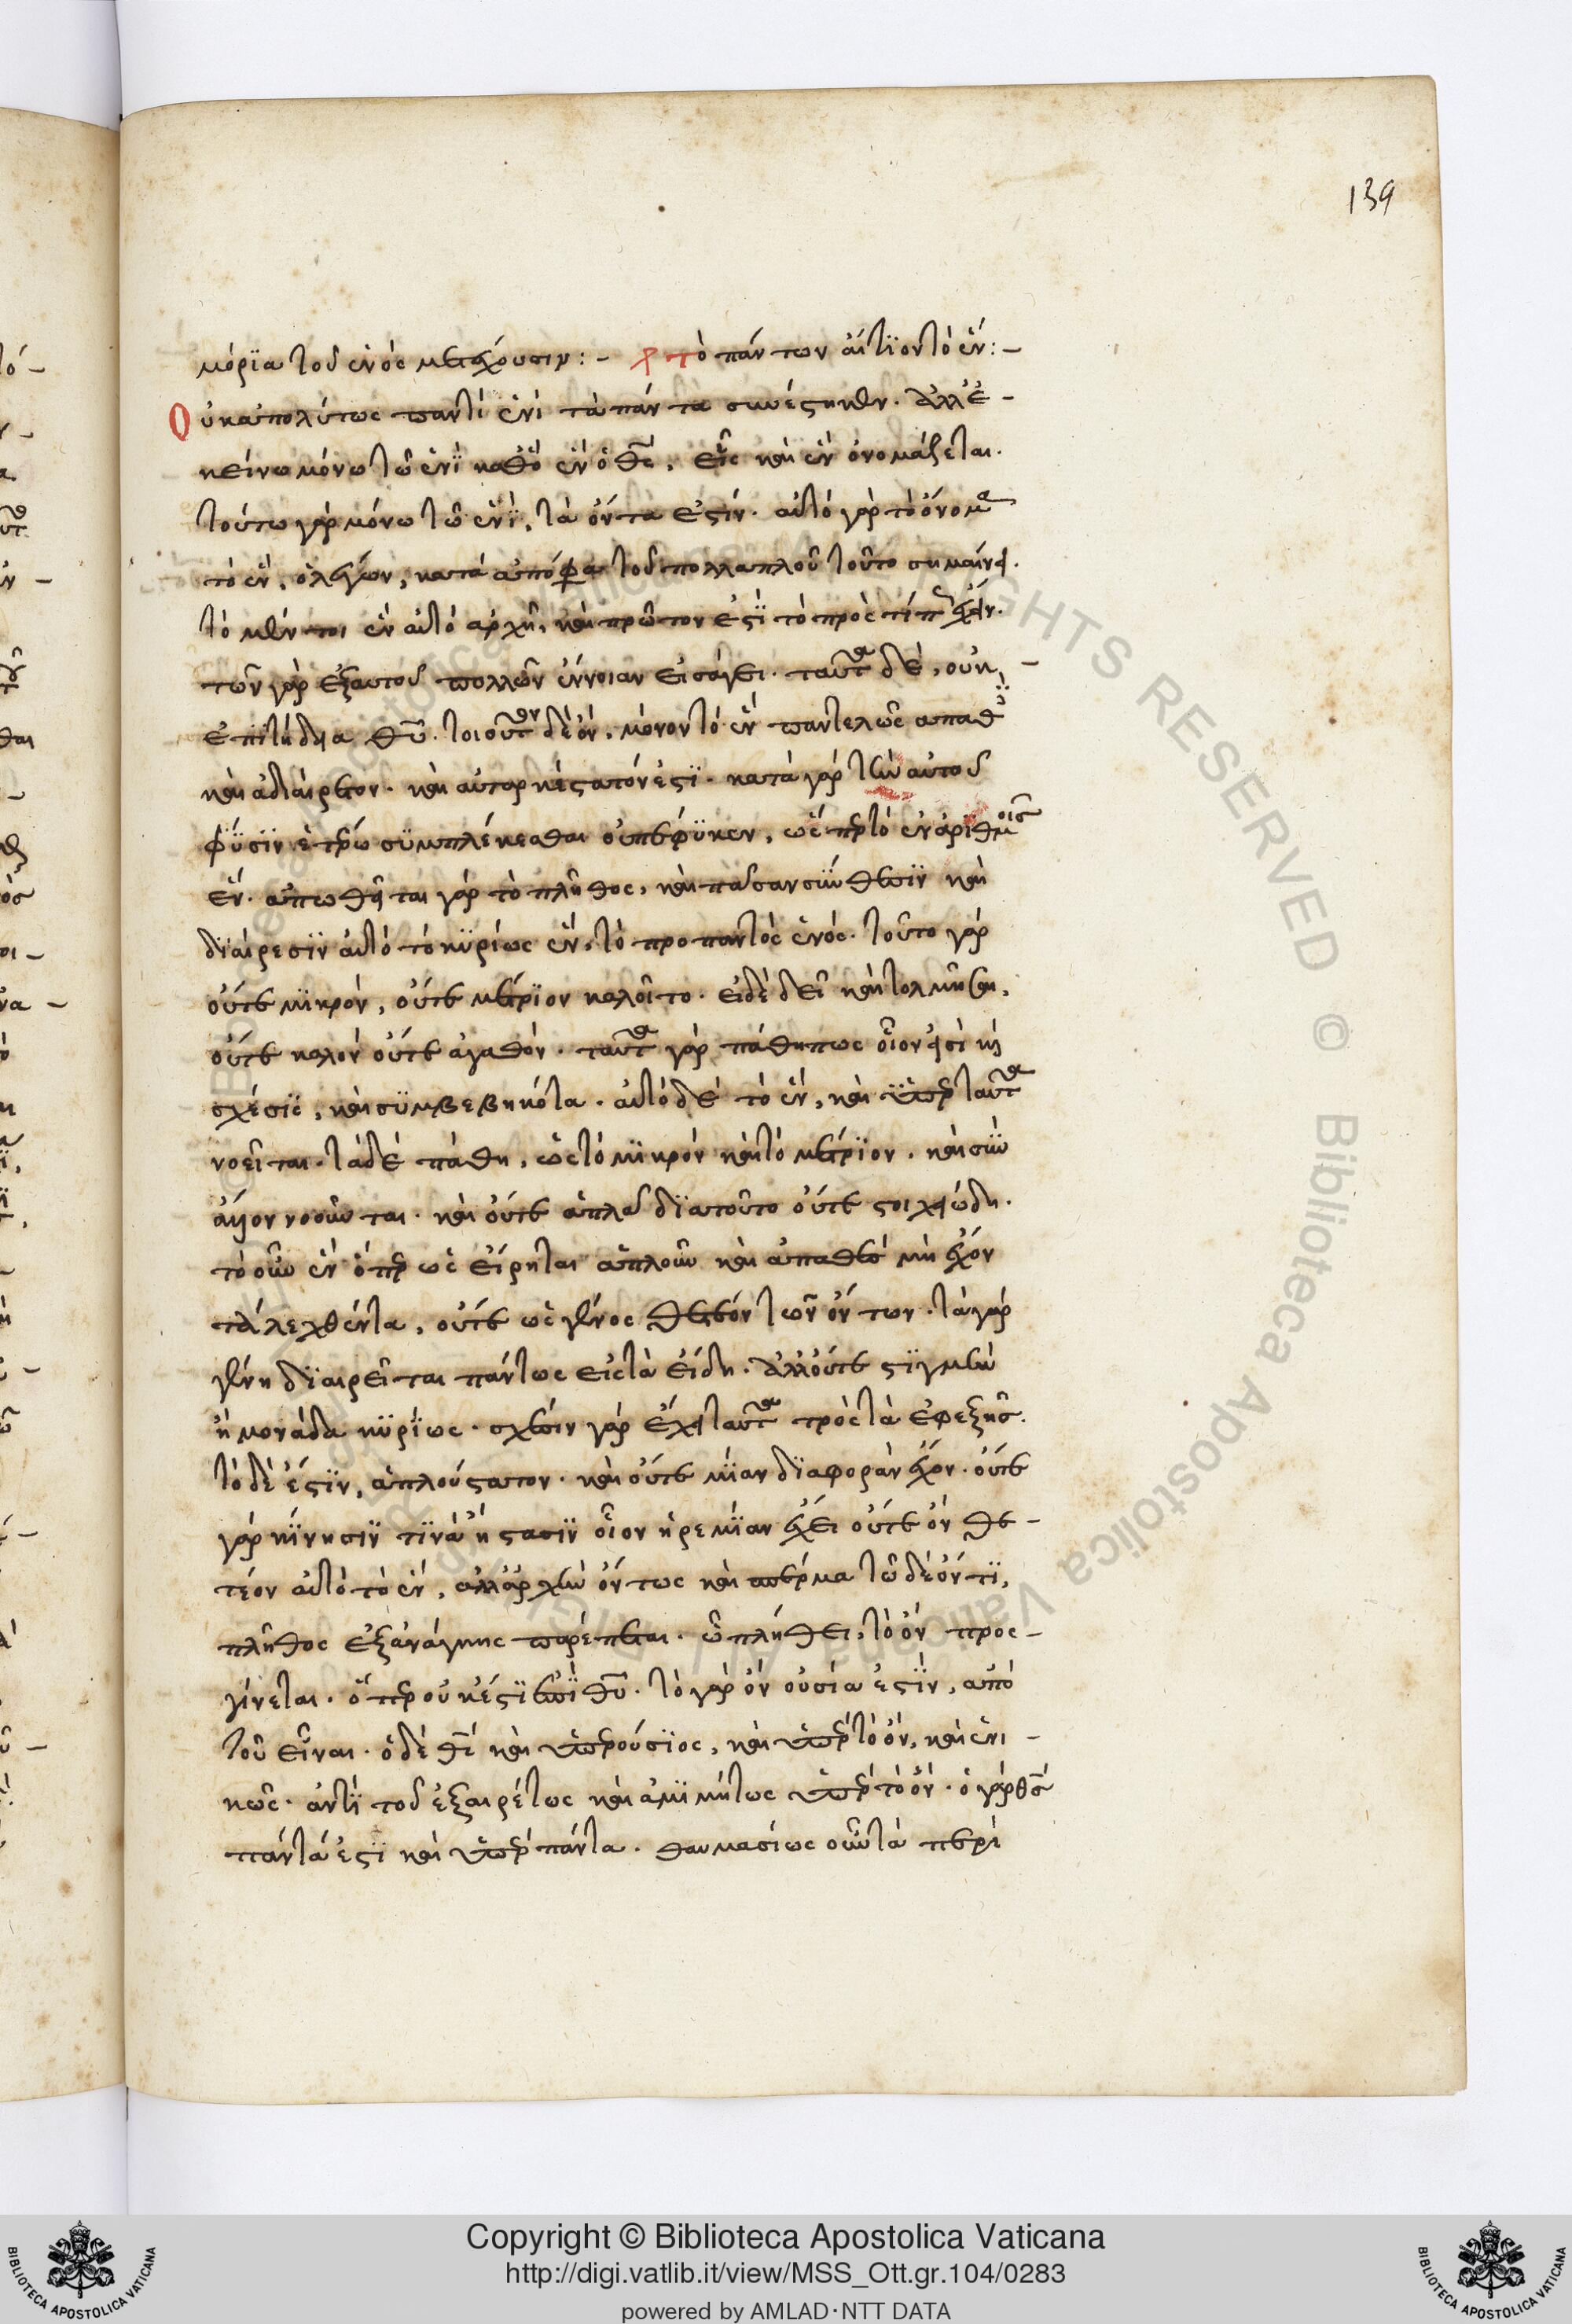 139
μόρϊα τοῦ ἑνὸς μετέχουσιν :– τὸ πάντων αἴτϊον τὸ ἕν :–
Οὐκ ἀπολύτως παντὶ ἑνὶ τὰ πάντα συνέστηκεν. ἀλλ' ἐ–
κείνω μόνω τῶ ἑνῒ καθὸ ἓν ὁ θς, εἷς καὶ ἓν ὀνομάζεται.
τούτω γὰρ μόνω τῶ ἑνῒ, τὰ ὄντα ἐστίν. αὐτὸ γὰρ τὸ ὄνομα
τὸ ἓν, κατὰ ἀπόφα τοῦ πολλαπλοῦ τοῦτο σημαίνει.
τὸ μέν τοι ἓν αὐτὸ ἀρχὴ, καὶ πρῶτον ἐστῒ τὸ πρὸς τί πως ἔχειν.
τῶν γὰρ ἐξ αυτοῦ πολλῶν ἔννοιαν εἰσάγει. ταῦτα δὲ, οὐκ
ἐπϊτήδεια θυ. τοιοῦτον δὲ ὂν, μόνον τὸ ἓν παντελῶς απαθὲς
καὶ ἀδιαίρετον. καὶ αὐταρκέστατόν ἐστϊ. κατὰ γὰρ τὴν αὐτοῦ
φΰσϊν ἑτέρω σϋμπλέκεσθαι οὐ πεφϋκεν, ὥσπερ τὸ ἐν ἀριθμοῖς
ἕν. ἀπωθεῖται γὰρ τὸ πλῆθος, καὶ πᾶσαν σύνθεσϊν καὶ
δϊαίρεσϊν αὐτὸ τὸ κϋρίως ἓν, τὸ προ παντὸς ἑνός. τοῦτο γὰρ
οὔτε μϊκρὸν, οὔτε μέτρϊον καλοῖτο. εἰ δὲ δεῖ καὶ τολμῆσαι,
οὔτε καλὸν οὔτε ἀγαθόν. ταῦτα γὰρ πάθη πως οἷον εἰσὶ καὶ
σχέσϊς, καὶ σϋμβεβηκότα. αὐτὸ δὲ τὸ ἓν, καὶ ὑπὲρ ταῦτα
νοεῖται. τὰ δὲ πάθη, ὡς τὸ μϊκρὸν καὶ τὸ μέτρϊον. καὶ σὺν
ἄλλον νοοῦνται. καὶ οὔτε ἁπλᾶ δϊατοῦτο οὔτε στοιχειώδη.
τὸ οὖν ἓν ὅπερ ὡς εἴρηται ἁπλοῦν καὶ ἀπαθὲς μὴ ἔχον
τὰ λεχθέντα, οὔτε ὡς γένος θετέον τῶν ὄντων. τὰ γὰρ
γένη δϊαιρεῖται πάντως εἰς τὰ εἴδη. ἀλλ' οὔτε στϊγμὴν
ἢ μονάδα κϋρΐως. σχέσιν γὰρ ἔχει ταῦτα πρὸς τὰ ἐφεξῆς.
τὸ δὲ ἕν ἐστϊν, ἁπλούστατον. καὶ οὔτε μίαν δϊαφορὰν ἔχον. οὔτε
γὰρ κΐνησϊν τϊνὰ ἢ στασϊν οἷον ἠρεμΐαν ἔχει οὔτε ὂν θε–
τέον αὐτὸ τὸ ἓν, ἀλλ' ἀρχὴν ὄντως καὶ σπέρμα τῶ δὲ ὄντϊ,
πλῆθος ἐξ ἀνάγκης παρέπεται. ὧ πλήθει, τὸ ὂν προς–
γίνεται. ὅπερ οὐκ ἔστϊ ἐπῒ θυ. τὸ γὰρ ὂν οὐσία ἐστΐν, ἀπὸ
τοῦ εἶναι. ὁ δὲ θς καὶ ὑπερούσϊος, καὶ ὑπὲρ τὸ ὂν, καὶ ἑνι–
κῶς. ἀντῒ τοῦ ἐξαιρέτως καὶ ἀμϊμήτως ὑπὲρ τὸ ὄν. ὁ γὰρ θς
πάντά ἐστϊ καὶ ὑπὲρ πάντα. θαυμασίως οὖν τὰ περὶ
Copyright © Biblioteca Apostolica Vaticana
http://digi.vatlib.it/view/MSS_Ott.gr.104/0283
powered by AMLAD·NTT DATA